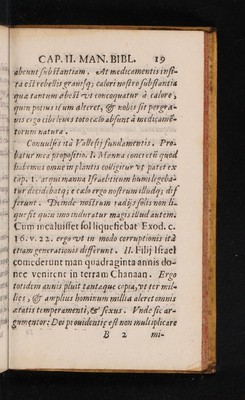 CAP. II. MAN. BIBL. 19
abeunt substantiam. At medicamentis insi-
ta est rebellis gravisq; calori nostro substantia
quæ tantum abest vt concoquatur à calore,
quin potius ipsum alteret, & nobis sit pergra-
vis ergo cibi eius toto cælo absunt à medicamē-
torum natura.
Convulsis itâ Vallesij fundamentis. Pro-
batur mea propositio. I. Manna concreti quod
hodie nos omne in plantis colligitur vt patet ex
cap. 1. at enim anna Israëliticum humi legeba-
tur decidebatq; è cælo ergo nostrum illudq; dif
ferunt. Deinde nostrum radijs solis non li-
quescit quin imo induratur magis illud autem.
Cum incaluisset sol liquefiebat Exod. c.
16. v. 22. ergo vt in modo corruptionis itâ
etiam generationis differunt. II. Filij Israel
comederunt man quadraginta annis do-
nec venirent in terram Chanaan. Ergo
totidem annis pluit tantaque copia, vt ter mil-
lies, & amplius hominum millia aleret omnis
ætatis temperamenti, & sexus. Vnde sic ar-
gumentor: Dei providentiæ est non multiplicare
B 2 mi-